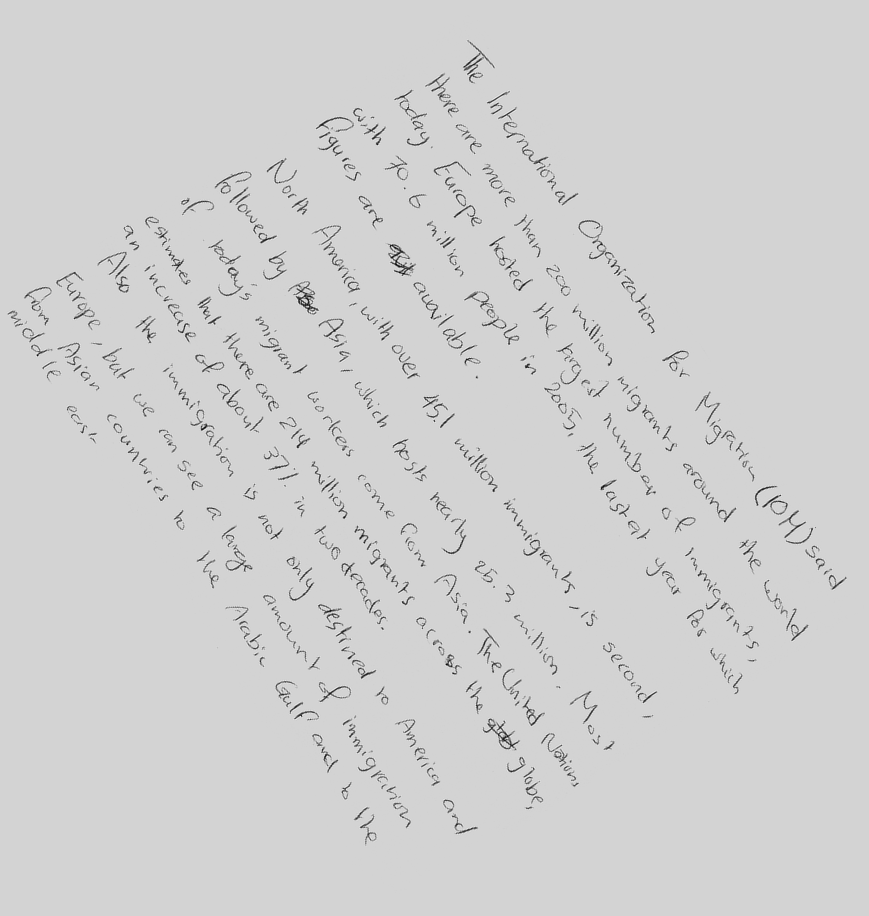 The International Organization for Migration (IOM) said
there are more than 200 million migrants around the world
today. Europe hosted the largest number of immigrants,
with 70.6 million people in 2005, the last year for which
figures are available.
North America, with over 45.1 million immigrants, is second,
followed by Asia, which hosts nearly 25.3 million. Most
of today's migrant workers come from Asia. The United Nations
estimates that there are 214 million migrants across the globe,
an increase of about 37% in two decades.
Also the immigration is not only destined to America and
Europe, but we can see a large amount of immigration
from Asian countries to the Arabic Gulf and to the
middle east